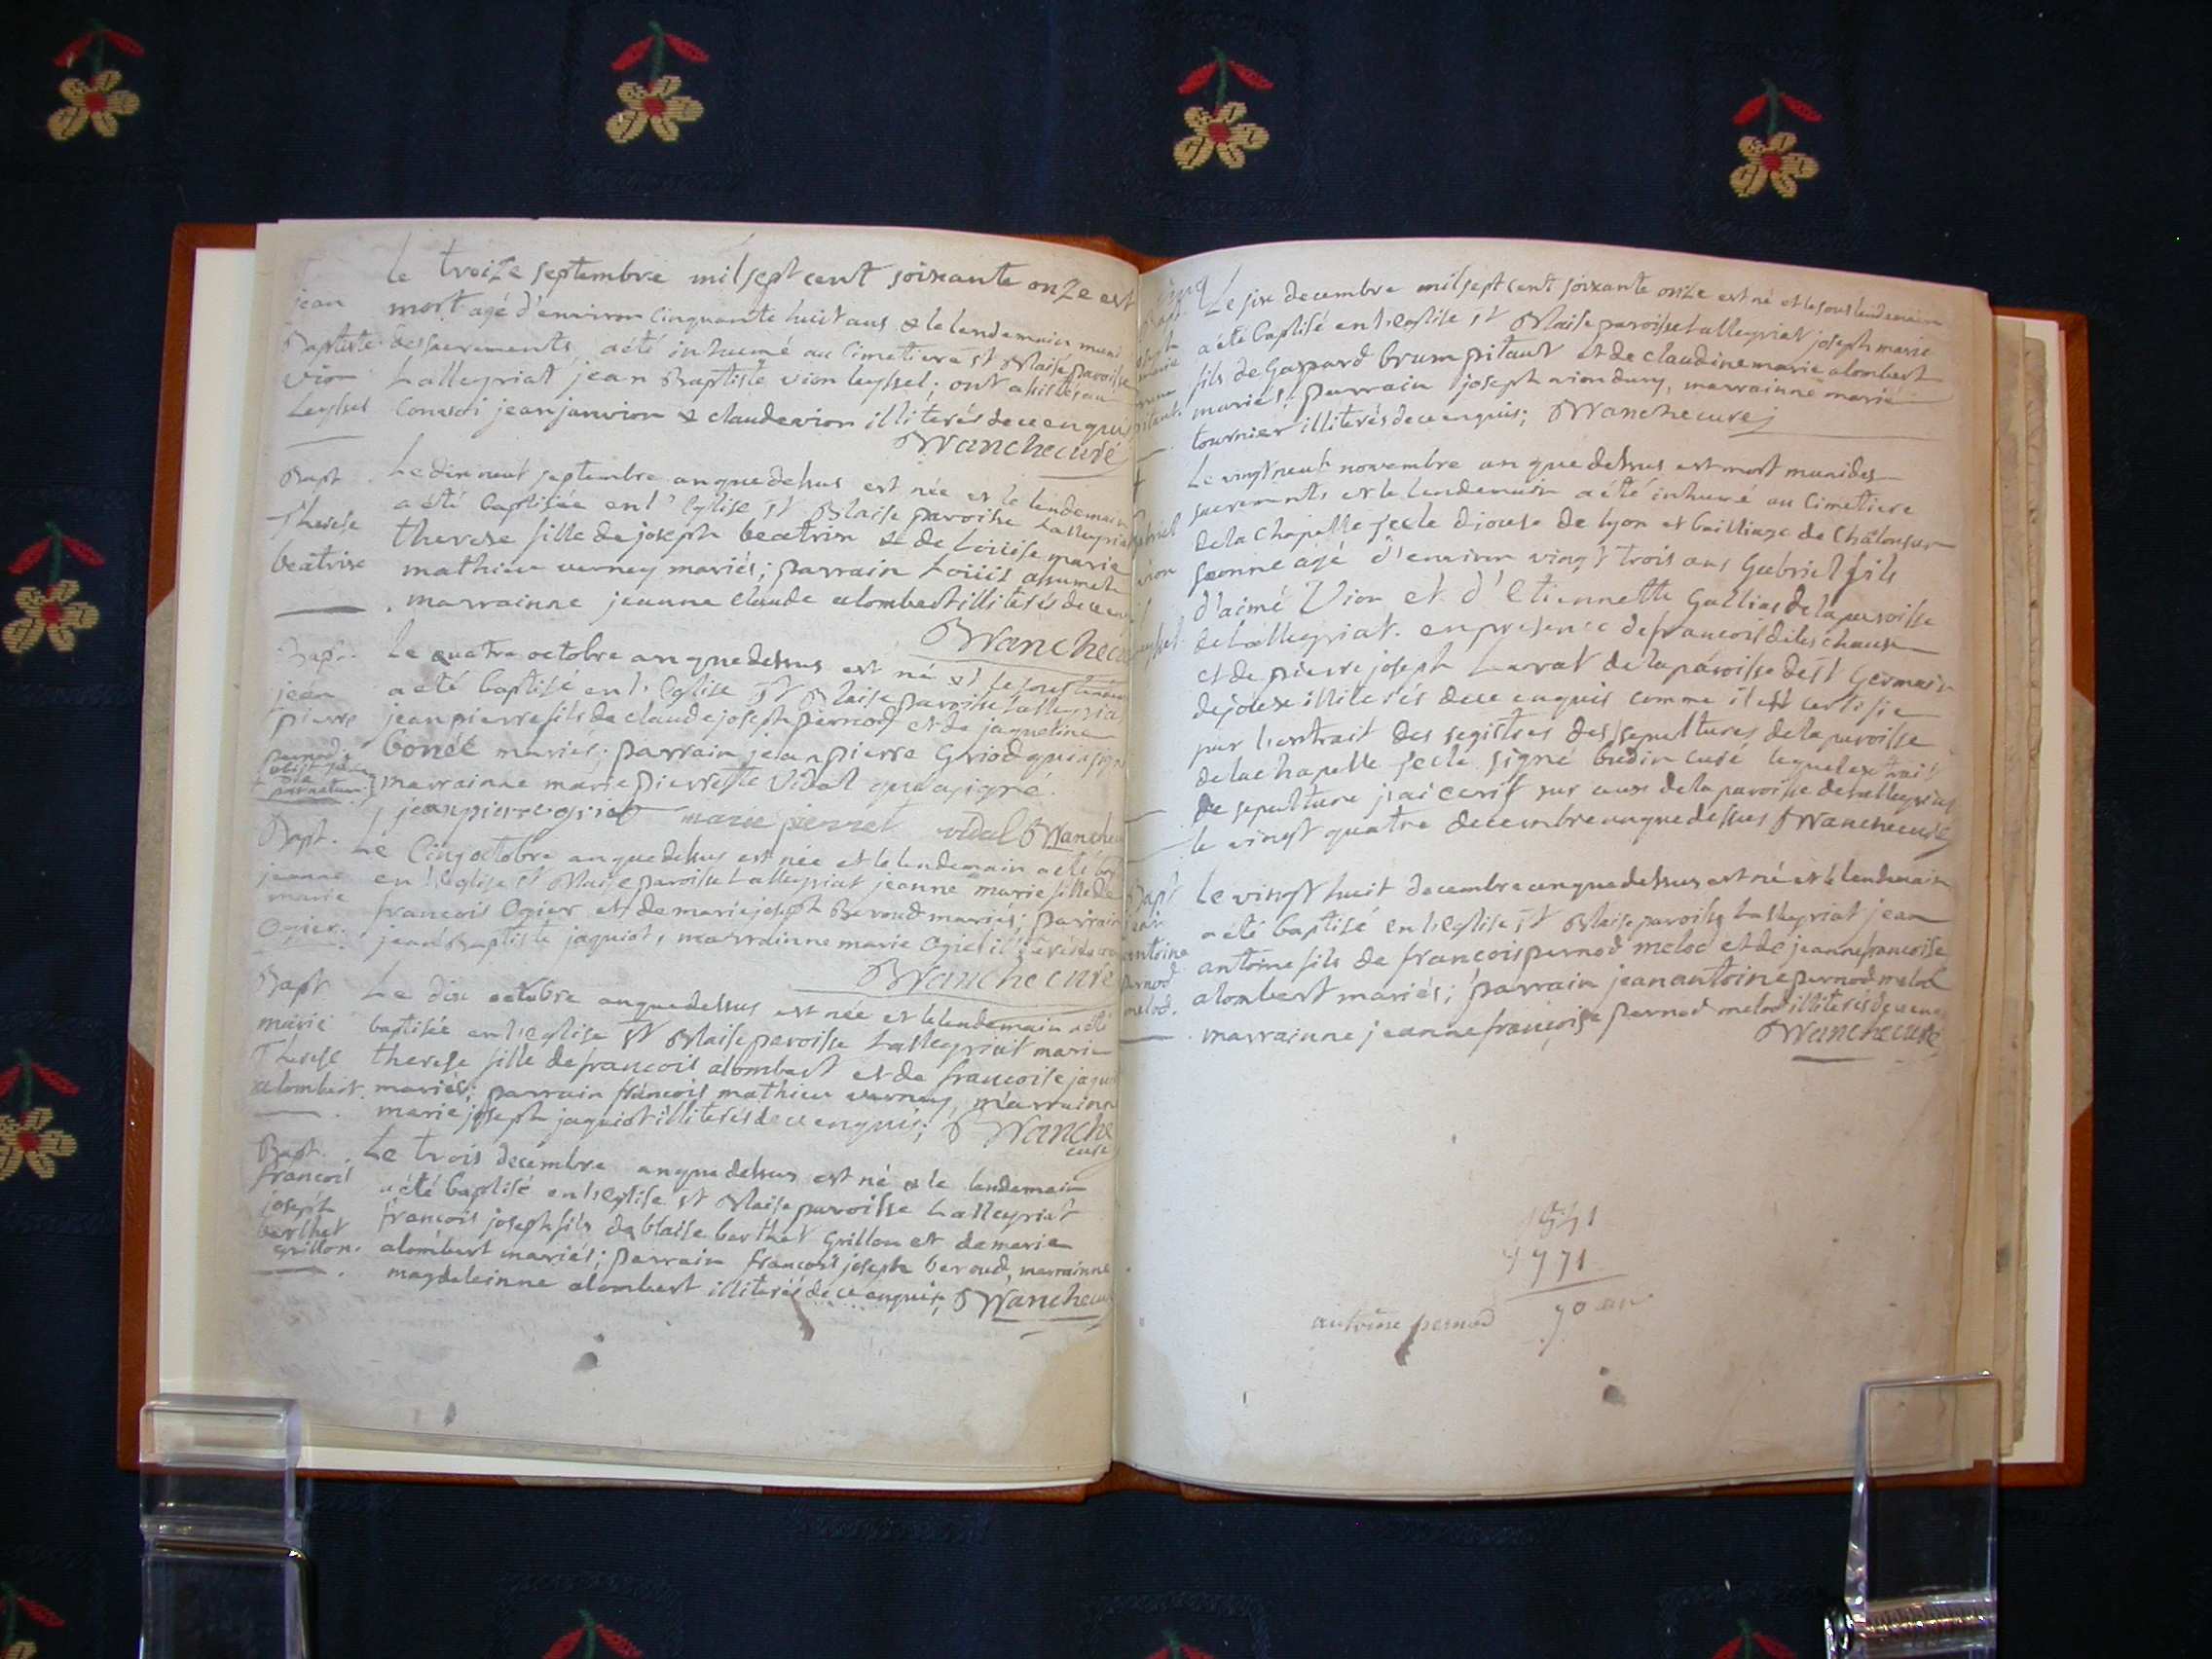 le treize septembre mil sept cent soixante onze est
jean mort agé d'environ cinquante huit ans & le lendemain muni
Baptiste des sacrements, a été inhumé au Cimetiere st Blaise paroisse
vion Lalleyriat jean Baptiste vion leyssel; ont assistés au
Leyssel Convoi jean janvion & claude vion illiterés de ce enquis
Blanche curé
Bapt. Le dix neuf septembre an que dessus est née et le lendemain
a été Baptisée en l'eglise st Blaise paroisse Lalleyriat
Therese therese fille de joseph beatrix & de Loüise marie
beatrixe mathieu verney mariés; parrain Loüis
marrainne jeanne claude alombert illiterés de ce
Blanche
Bapt. Le quatre octobre an que dessus est né et le
jean a été baptisé en l'eglise st Blaise paroisse Lalleyriat
pierre jean pierre fils de claude joseph pernod et de jaqueline
pernod bonée mariés; parrain jean pierre Griod qui a signé
marrainne marie pierrette Vidal qui a signé.
jean pierre griod marie pierret vidal Blanche
Bapt. Le Cinq octobre an que dessus est née et le lendemain a été
jeanne en l'eglise st Blaise paroisse Lalleyriat jeanne marie fille de
marie francois Ogier et de marie joseph Beroud mariés; parrain
Ogier. jean Baptiste jaquiot, marrainne marie Ogier
Blanche curé
Bapt Le dix octobre an que dessus est née et le lendemain a été
marie baptisée en l'eglise st Blaise paroisse Lalleyriat marie
Therese therese fille de francois alombert et de francoise
alombert. mariés; parrain francois mathieu verney, marrainne
marie joseph jaquiot illiterés de ce enquis; Blanche
curé
Bapt. Le trois decembre an que dessus est né & le lendemain
francois a été baptisé en l'eglise st Blaise paroisse Lalleyriat
joseph francois joseph fils de blaise berthet Grillon et de marie
berthet alombert mariés; parrain francois joseph beroud, marrainne
grillon. magdeleinne alombert illiterés de ce enquis; Blanche curé
Le six decembre mil sept cent soixante onze est né et le
a été baptisé en l'eglise st Blaise paroisse Lalleyriat joseph marie
fils de Gaspard brum pitaut et de claudine marie alombert
mariés; parrain joseph vion dury, marrainne marie
tournier illiterés de ce enquis; Blanche curé
Le vingt neuf novembre an que dessus est mort muni des
sacrements et le lendemain a été inhumé au Cimetiere
de la Chapelle diocese de lyon et bailliage de Châlon sur
saonne agé d'environ vingt trois ans Gabriel fils
vion d'aimé Vion et d'Etiennette Gallias de la paroisse
de Lalleyriat. en presence de francois
et de pierre joseph de la paroisse de st Germain
de joux illiterés de ce enquis comme il est certifié
par l'extrait des registres des sepultures de la paroisse
de la chapelle signé budin curé lequel extrait
de sepulture j'ai ecrit sur ceux de la paroisse de Lalleyriat
le vingt quatre decembre an que dessus Blanche curé
Bapt Le vingt huit decembre an que dessus est né et le lendemain
jean a été baptisé en l'eglise st Blaise paroisse Lalleyriat jean
antoine antoine fils de francois pernod melod et de jeanne francoise
pernod alombert mariés; parrain jean antoine pernod melod
melod. marrainne jeanne françoise pernod melod illiterés de ce
Blanche curé
1771
antoine pernod